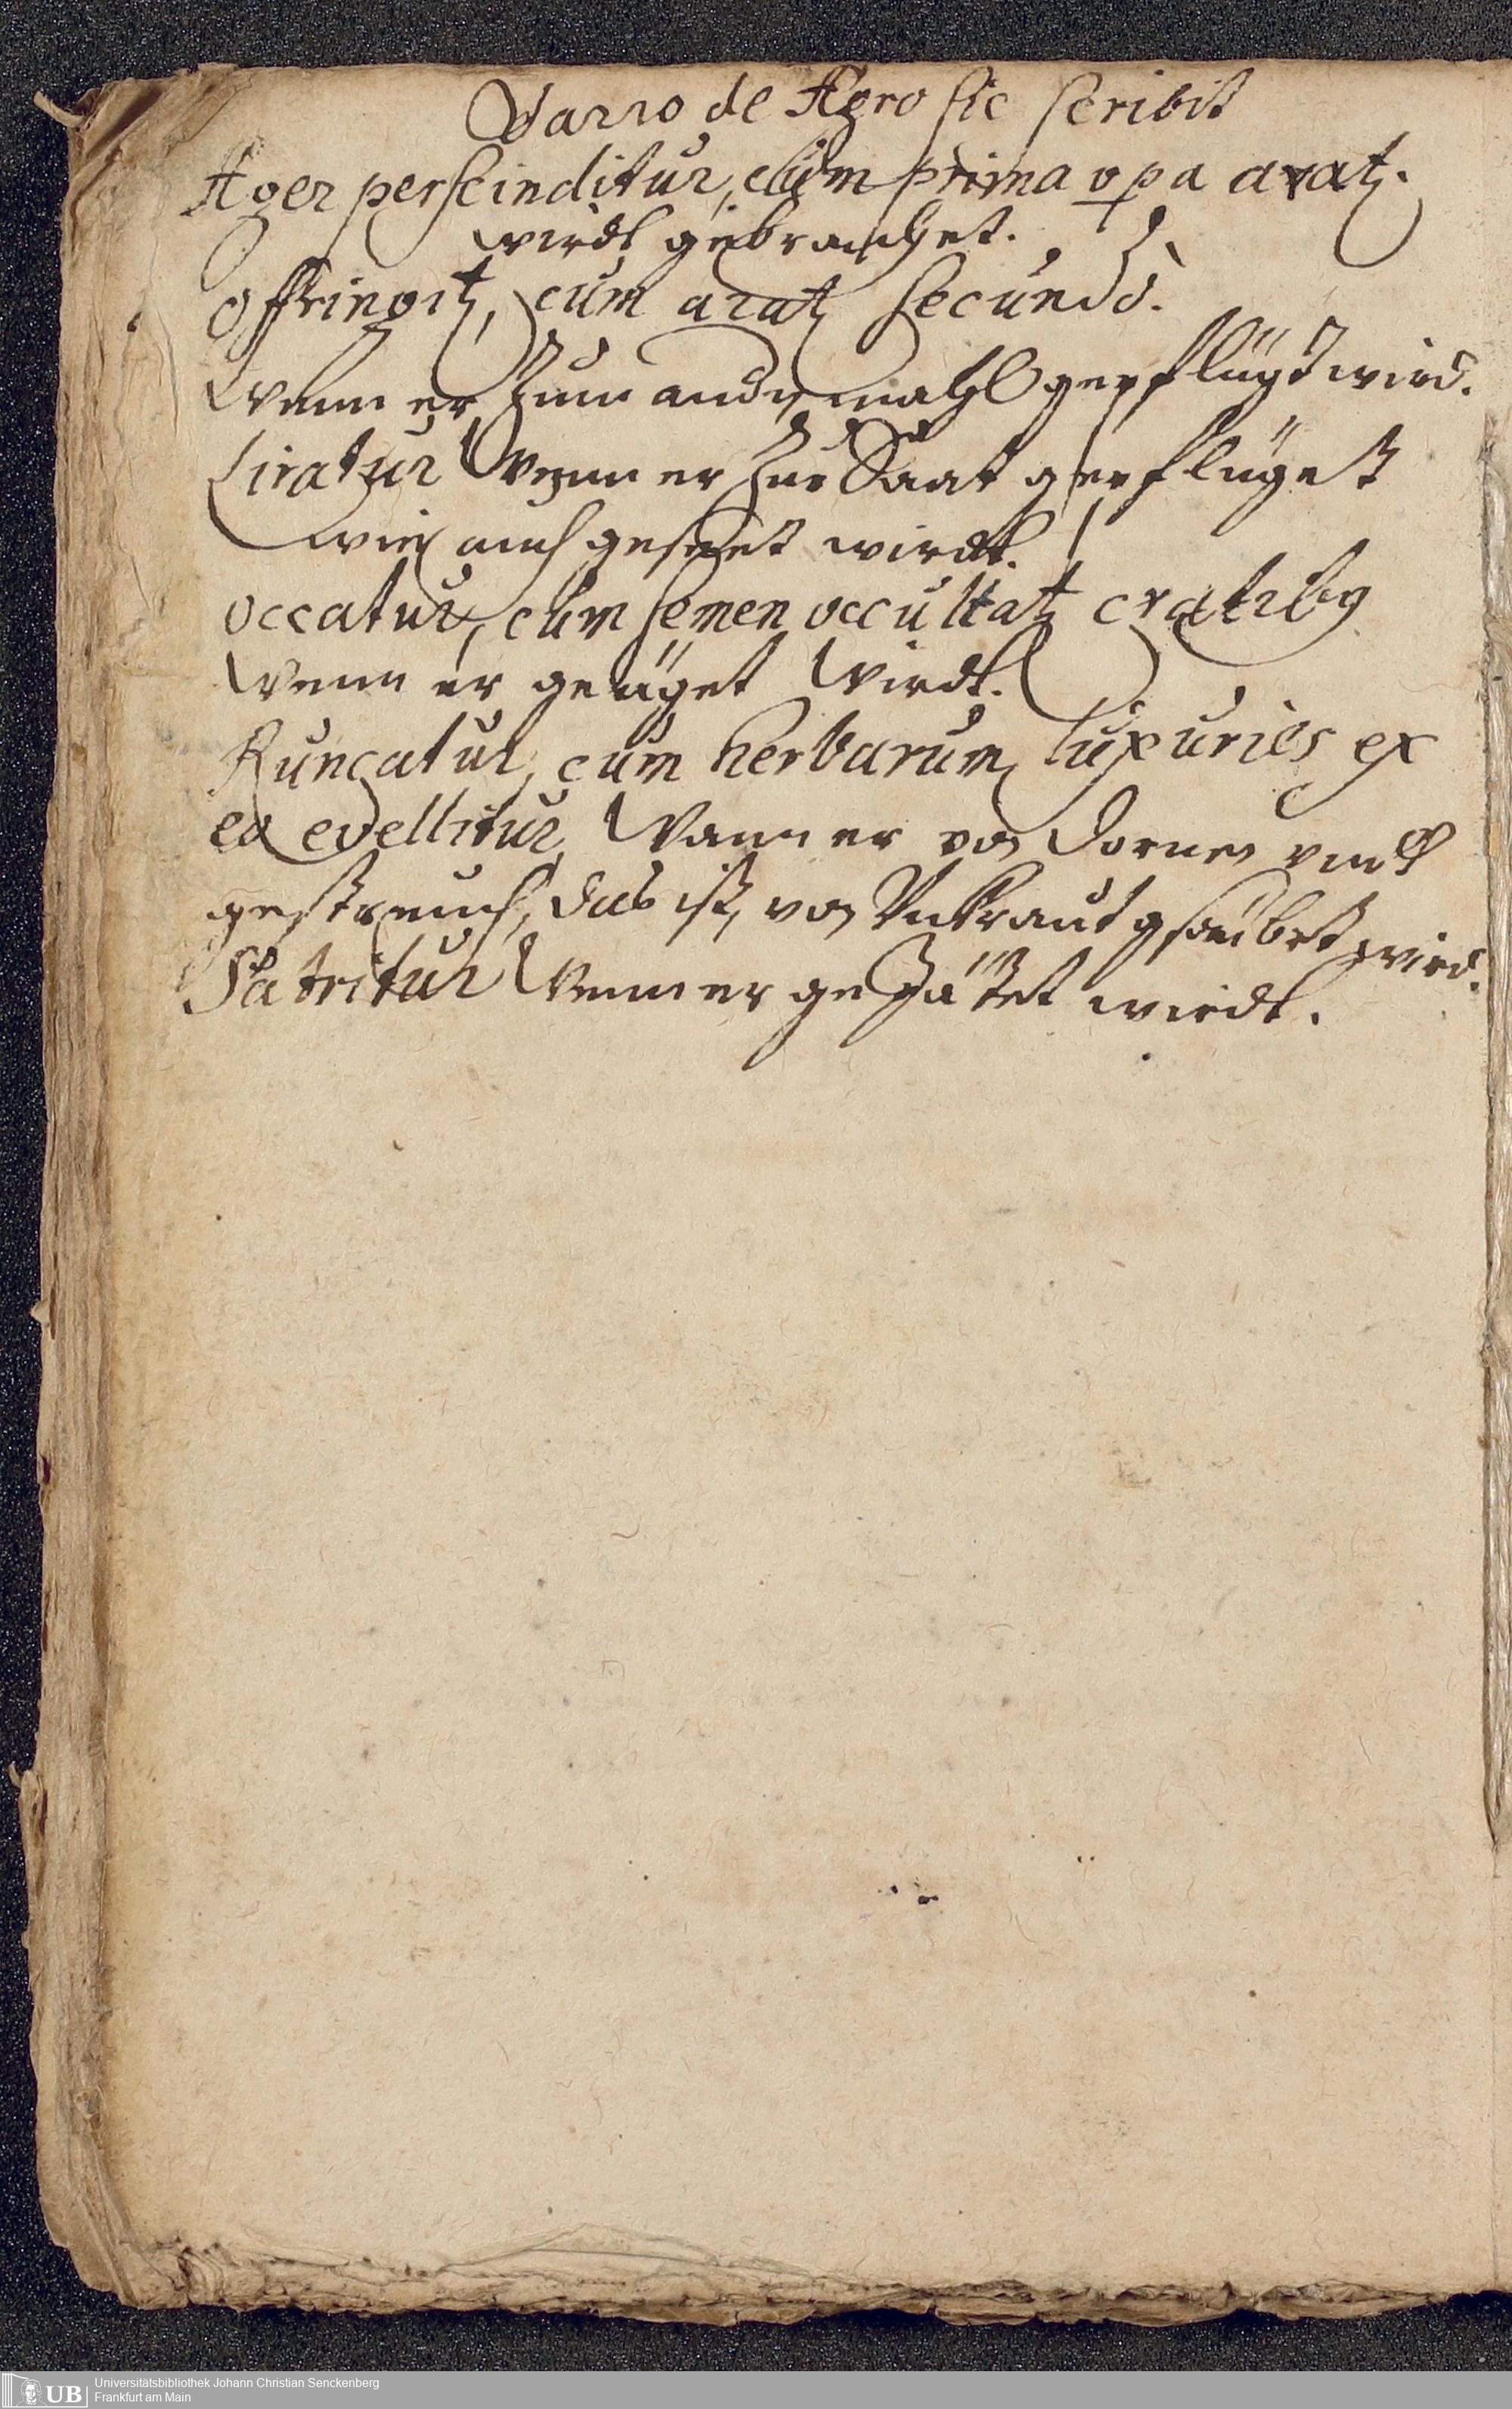 Varro de Agro sic scribit
Ager perscinditur, cum prima opa aratꝭ.
wirdt gebrachet.
Offringitꝭ, cum aratꝭ secundò.
Wenn er zum andern mahl gepflügt wird.
Liratur Wenn er zur Saat gepflüget
wie auch geseet wirdt.
occatur, cum semen occultatꝭ cratibꝯ
Wenn er geäget Wirdt.
Runcatur, cum herbarum luxuries ex
eo evellitur, Wann er von Dornen vndt
gestreuch, das ist, von Vnkraut gseübert wird.
Satritur Wenn er gejätet wirdt.
UB Universitätsbibliothek Johann Christian Senckenberg
Frankfurt am Main